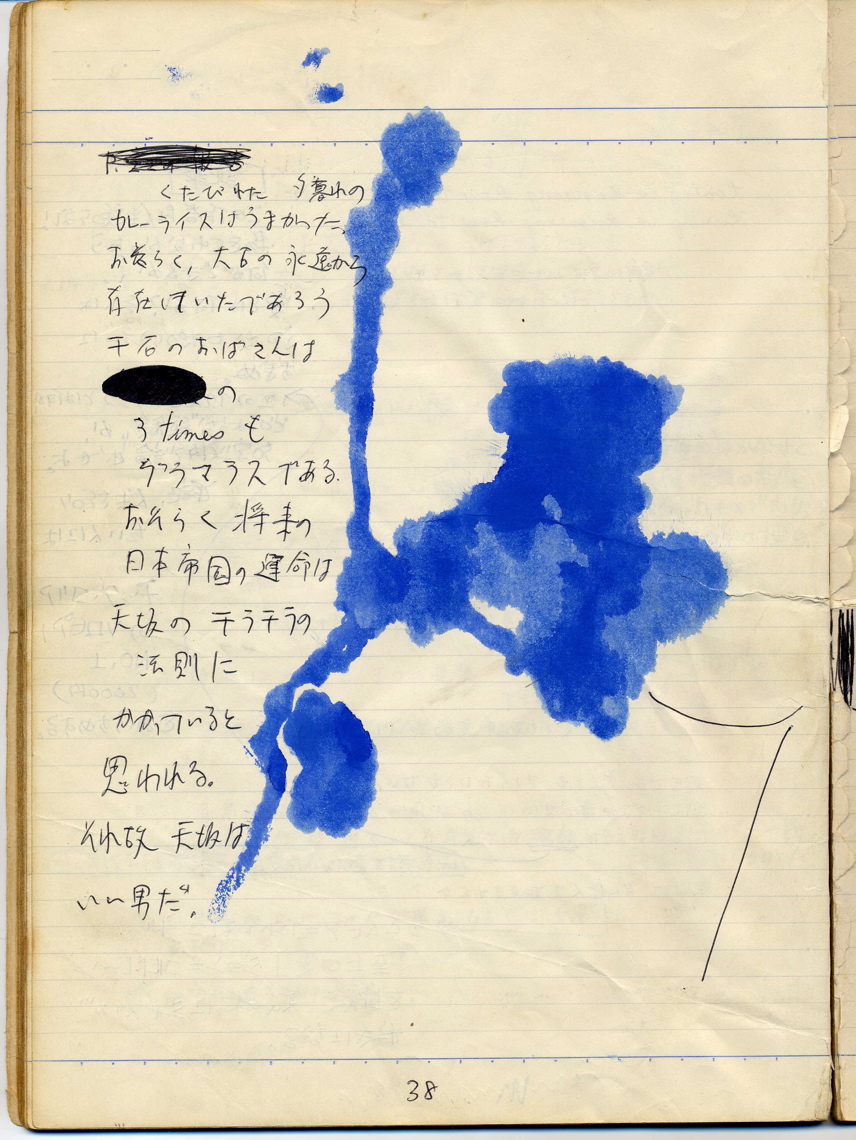 くたびれた 夕暮れの
カレーライスはうまかった。
お恐らく、太古の永遠から
存在していたであろう
千石のおばさんは
の
3 times も
グラマラスである。
おそらく将来の
日本帝国の運命は
天坂のテラテラの
法則に
かかっていると
思われる。
それ故 天坂は
いい男だ。
38